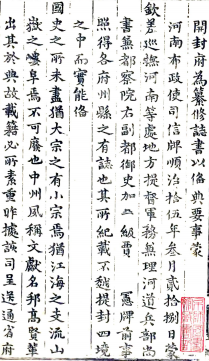 開封府為纂修誌書以備典要事蒙
河南布政使司信牌順治拾伍年叁月貳拾捌日蒙
欽差巡撫河南等處地方提督軍務兼理河道兵部尚
書兼都察院右副都御史加一級賈 憲牌前事
照得各府州縣之有誌也其所紀載不越提封四境
之中而實能備
國史之所未盡猶大宗之有小宗焉猶江海之支流山
嶽之嶁阜焉不可廢也中州風稱文獻名邦高賢輩
出其於典故載籍必所素重昨據該司呈送通省府